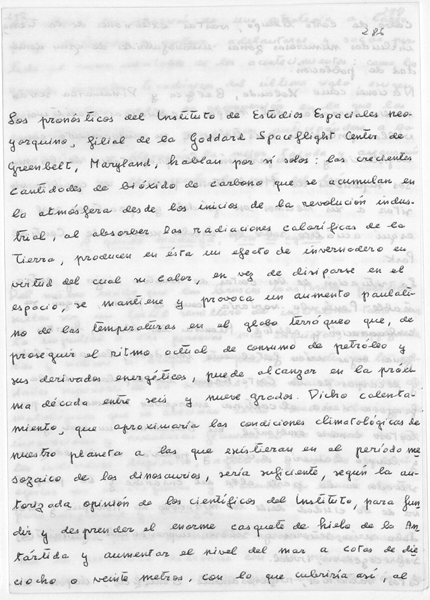 286
Los pronósticos del Instituto de Estudios Espaciales neo-
yorquino, filial de la Goddard Spaceflight Center de
Greenbelt, Maryland, hablan por sí solos: las crecientes
cantidades de bióxido de carbono que se acumulan en
la atmósfera desde los inicios de la revolución indus-
trial, al absorber las radiaciones caloríficas de la
Tierra, producen en ésta un efecto de invernadero en
virtud del cual su calor, en vez de disiparse en el
espacio, se mantiene y provoca un aumento paulati-
no de las temperaturas en el globo terráqueo que, de
proseguir el ritmo actual de consumo de petróleo y
sus derivados energéticos, puede alcanzar en la próxi-
ma década entre seis y nueve grados. Dicho calenta-
miento, que aproximaría las condiciones climatológicas de
nuestro planeta a las que existieran en el período me-
sozaico de los dinosaurios, sería suficiente, según la au-
torizada opinión de los científicos del Instituto, para fun-
dir y desprender el enorme casquete de hielo de la An-
tártida y aumentar el nivel del mar a cotas de die-
ciocho o veinte metros, con lo que cubriría así, al